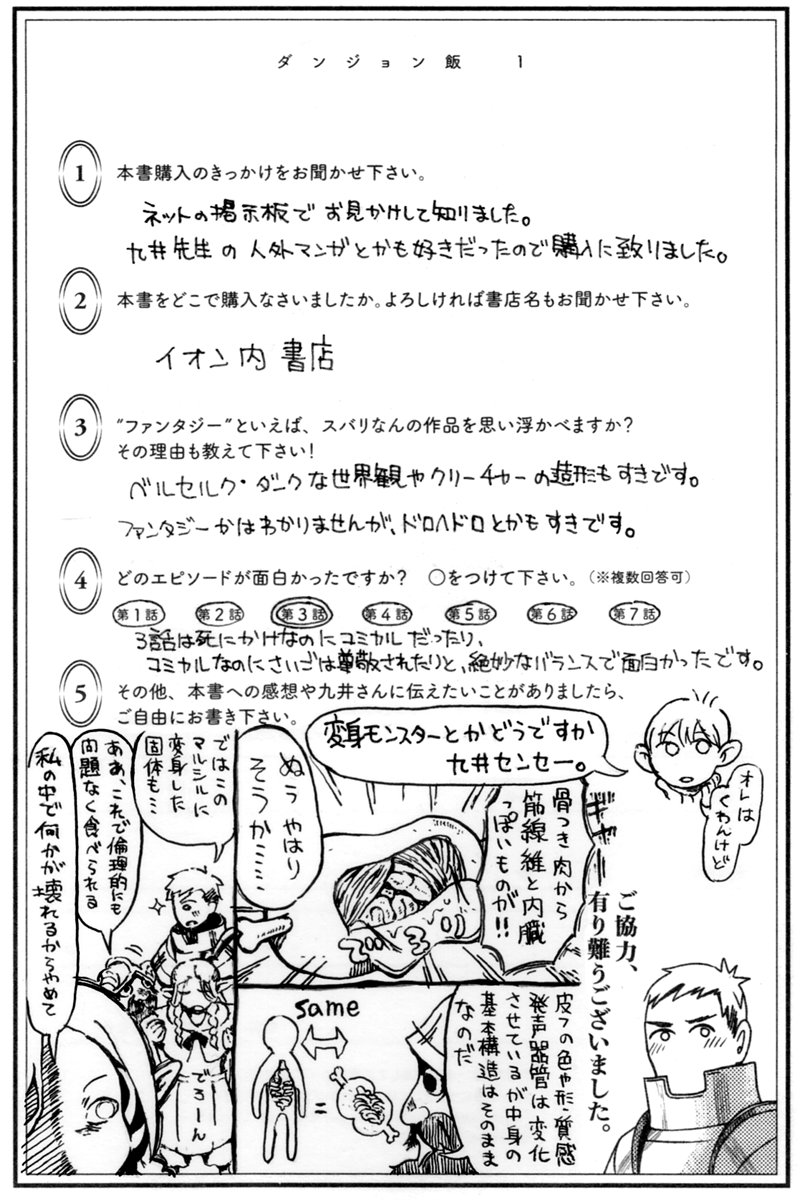 ダンジョン飯 1
1 本書購入のきっかけをお聞かせ下さい。
ネットの掲示板でお見かけして知りました。
九井先生の人外マンガとかも好きだったので購入に致りました。
2 本書をどこで購入なさいましたか。よろしければ書店名もお聞かせ下さい。
イオン内書店
3 “ファンタジー”といえば、スバリなんの作品を思い浮かべますか?
その理由も教えて下さい!
ベルセルク・ダークな世界観やクリーチャーの造形もすきです。
ファンタジーかはわかりませんが、ドロヘドロとかもすきです。
4 どのエピソードが面白かったですか? ○をつけて下さい。(※複数回答可)
第1話 第2話 第3話 第4話 第5話 第6話 第7話
3話は死にかけなのにコミカルだったり、
コミカルなのにさいごは尊敬されたりと、絶妙なバランスで面白かったです。
5 その他、本書への感想や九井さんに伝えたいことがありましたら、
ご自由にお書き下さい。
変身モンスターとかどうですか
九井センセー。
オレは
くわんけど
ギャー
骨つき肉から
筋線維と内臓
っぽいものが!!
ぬぅやはり
そうか……
皮フの色や形・質感
発声器管は変化
させているが中身の
基本構造はそのまま
なのだ
same
=
ではこの
マルシルに
変身した
固体も…
ああ、これで倫理的にも
問題なく食べられる
私の中で何かが壊れるからやめて
でろーん
ご協力、
有り難うございました。